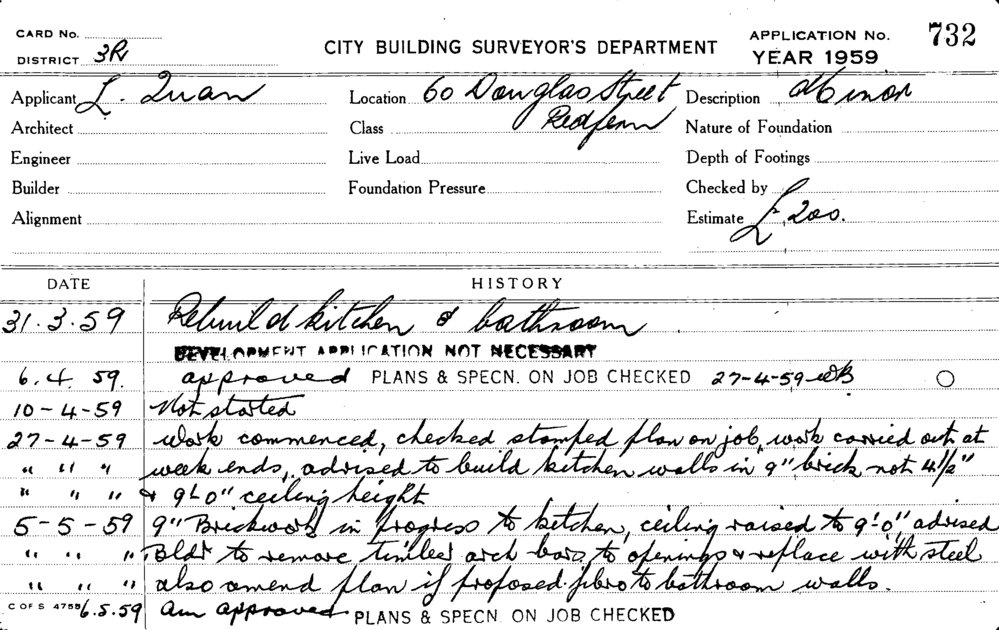 CARD No.
CITY BUILDING SURVEYOR'S DEPARTMENT
APPLICATION No. 732
DISTRICT 3R
YEAR 1959
Applicant L. Quan
Location 60 Douglas Street
Description Minor
Architect
Class Redfern
Nature of Foundation
Engineer
Live Load
Depth of Footings
Builder
Foundation Pressure
Checked by
Alignment
Estimate £200.
DATE HISTORY
31.3.59 Rebuild kitchen & bathroom
DEVELOPMENT APPLICATION NOT NECESSARY
6.4.59. approved PLANS & SPECN. ON JOB CHECKED 27-4-59 WB
10-4-59 Not started
27-4-59 work commenced, checked stamped plan on job, work carried out at
" " " week ends, advised to build kitchen walls in 9" brick not 4½"
" " " & 9'-0" ceiling height
5-5-59 9" Brickwork in progress to kitchen, ceiling raised to 9'-0" advised
" " " Bldr to remove timber arch bars to openings & replace with steel
" " " also amend plan if proposed fibro to bathroom walls.
C OF S 4758 6.5.59 Am approved PLANS & SPECN. ON JOB CHECKED